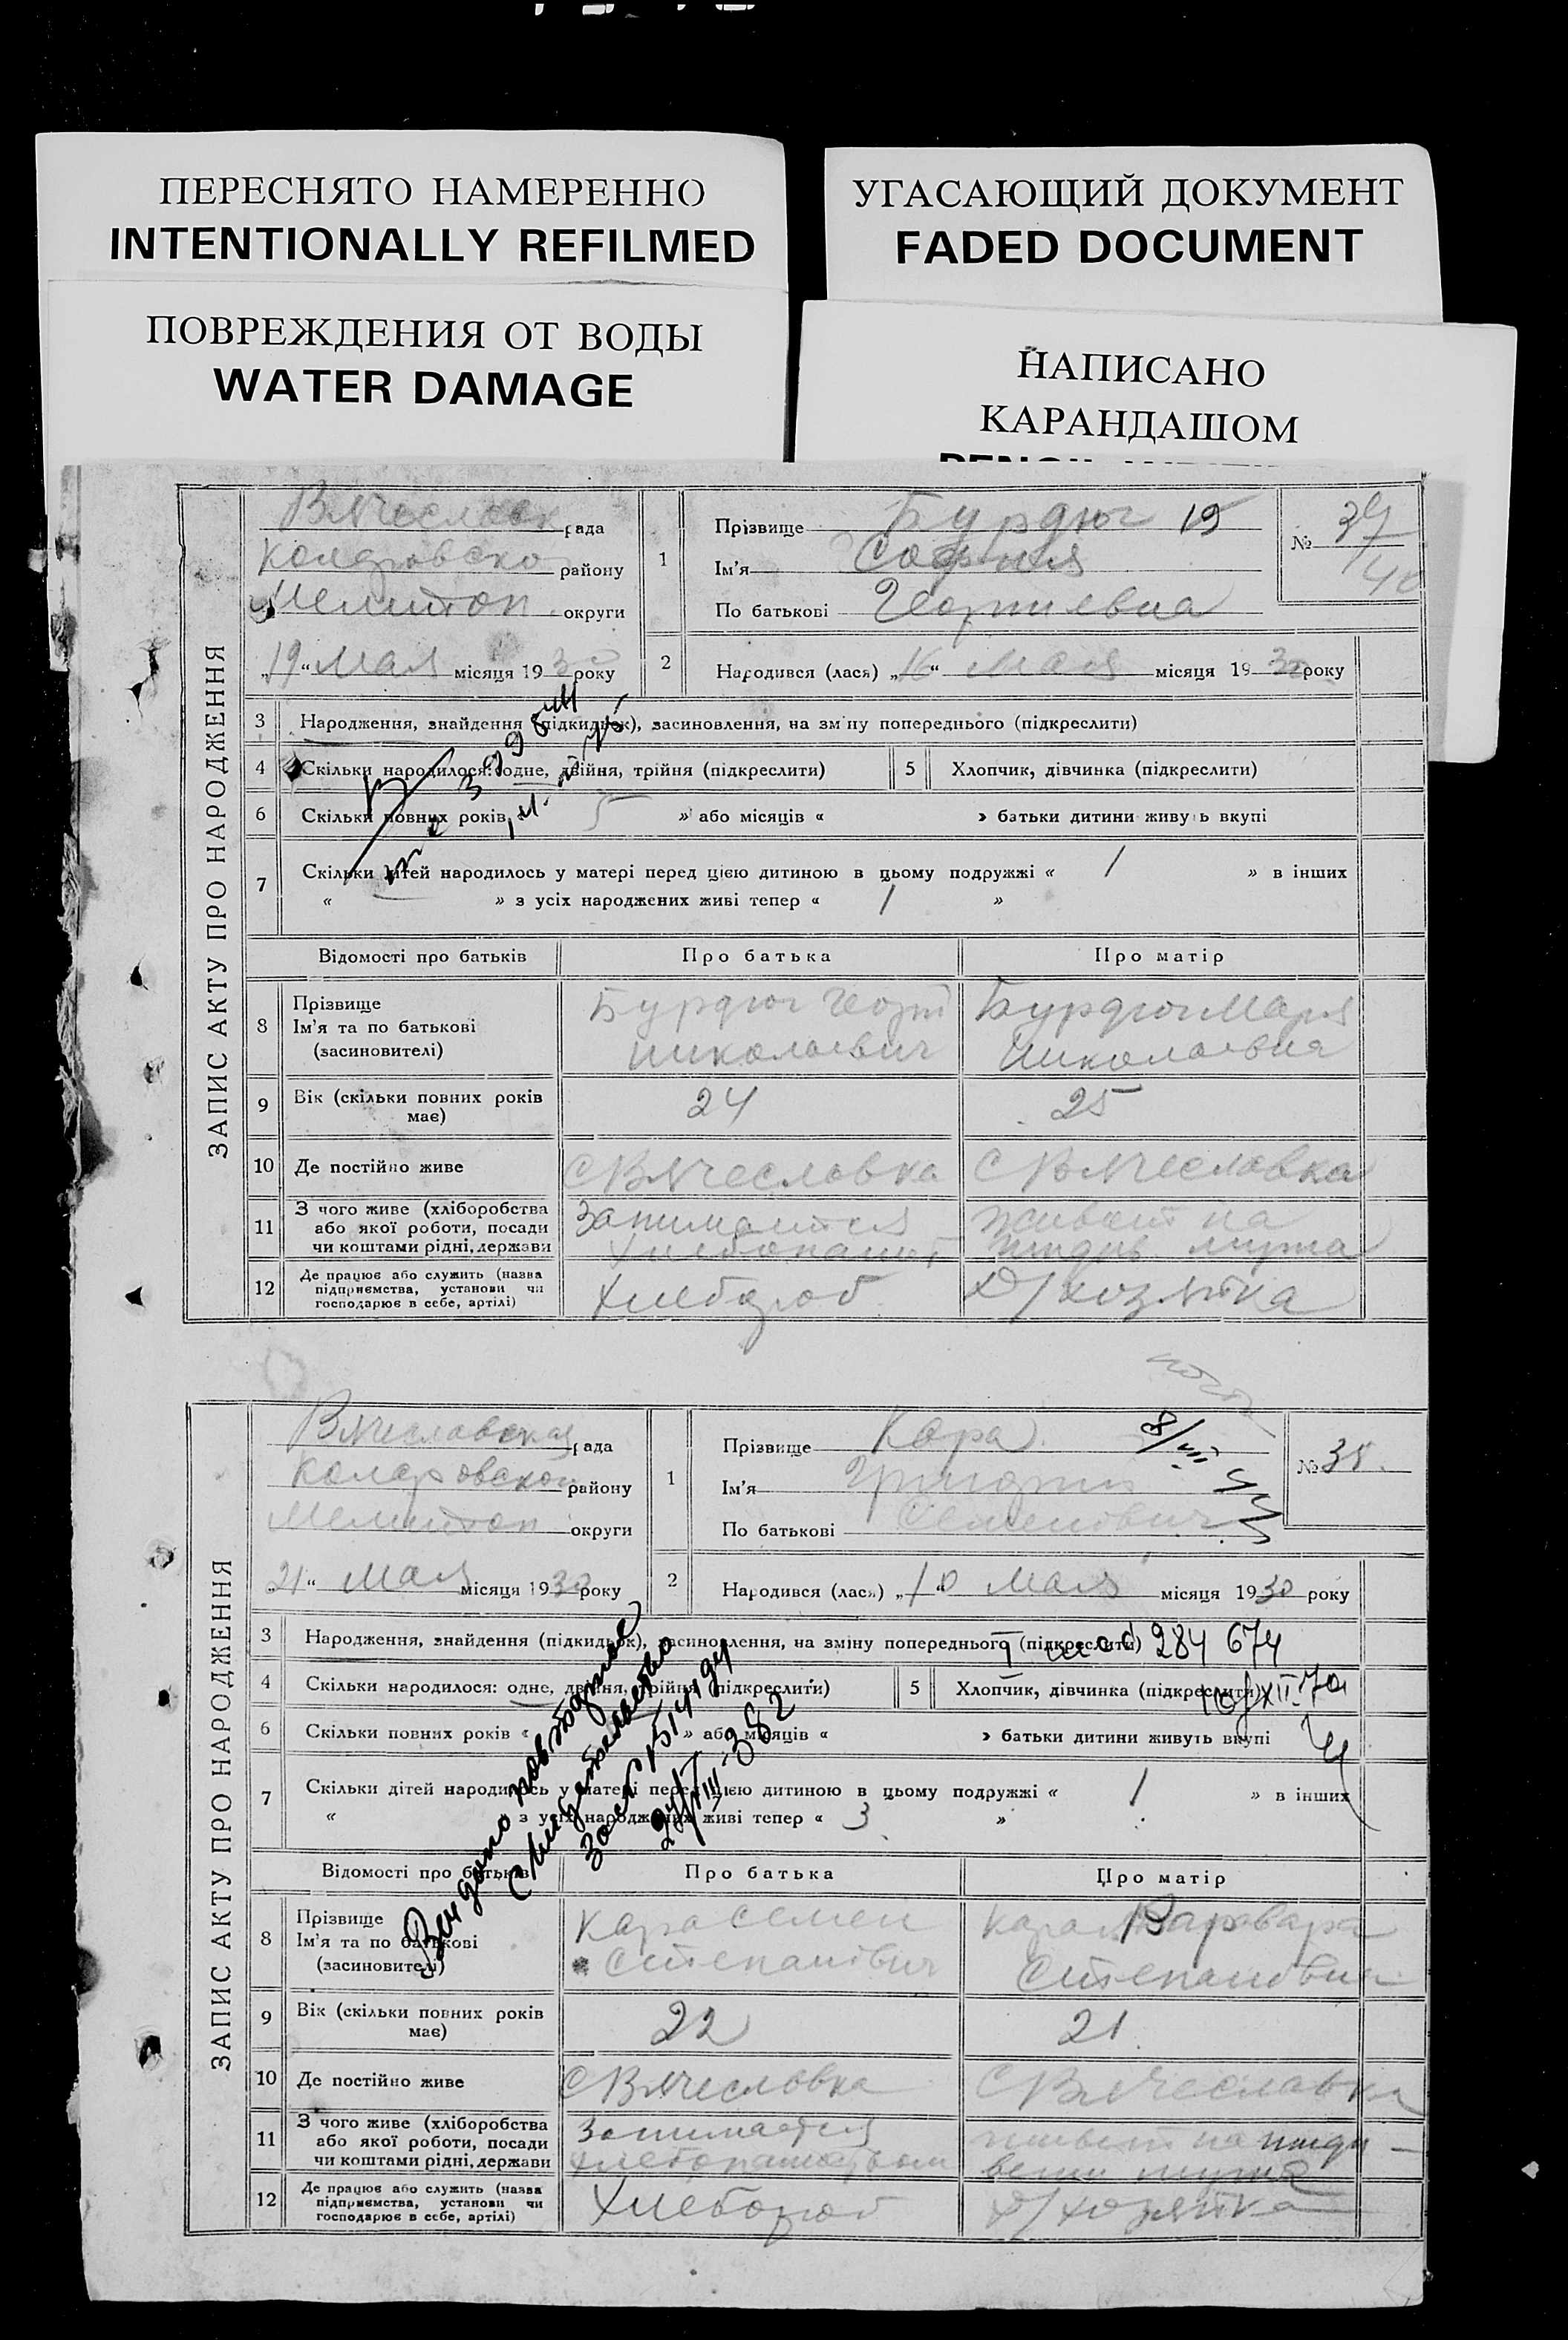 ПЕРЕСНЯТО НАМЕРЕННО
INTENTIONALLY REFILMED
УГАСАЮЩИЙ ДОКУМЕНТ
FADED DOCUMENT
ПОВРЕЖДЕНИЯ ОТ ВОДЫ
WATER DAMAGE
НАПИСАНО
КАРАНДАШОМ
ЗАПИС АКТУ ПРО НАРОДЖЕННЯ
рада
району
Мелитоп округи
„19“ Мая місяця 1930 року
1
Прізвище Бурдюг 19
Ім'я София
По батькові Георгиевна
№ 39
40
2 Народився (лася) „16“ Мая місяця 1930 року
3 Народження, знайдення (підкидьок), засиновлення, на зміну попереднього (підкреслити)
4 Скільки народилося: одне, двійня, трійня (підкреслити)
5 Хлопчик, дівчинка (підкреслити)
6 Скільки повних років 5 » або місяців « » батьки дитини живуть вкупі
7 Скільки дітей народилось у матері перед цією дитиною в цьому подружжі « 1 » в інших
« » з усіх народжених живі тепер « 1 »
Відомості про батьків Про батька Про матір
8 Прізвище Ім'я та по батькові (засновителі)
Бурдюг Георг Николаевич
Бурдюг Мария Николаевна
9 Вік (скільки повних років має) 24 25
10 Де постійно живе С Вячесловка С Вячеславка
11 З чого живе (хліборобства або якої роботи, посади чи коштами рідні, держави
Занимается
живет на
мужа
12 Де працює або служить (назва підприємства, установи чи господарює в себе, артілі)
Хлебороб Д/хозяйка
ЗАПИС АКТУ ПРО НАРОДЖЕННЯ
Вячеславская рада
Коларовского району
Мелитоп округи
„21“ Мая місяця 1930 року
1
Прізвище Кара
Ім'я Григорий
По батькові Семенович
8/III 43
№ 38.
2 Народився (лася) „10 Мая місяця 1930 року
3 Народження, знайдення (підкидьок), засиновлення, на зміну попереднього (підкреслити)
284 674
4 Скільки народилося: одне, двійня, трійня (підкреслити)
5 Хлопчик, дівчинка (підкреслити)
6 Скільки повних років « » або місяців « » батьки дитини живуть вкупі
7 Скільки дітей народилось у матері перед цією дитиною в цьому подружжі « 1 » в інших
« » з усіх народжених живі тепер « 3 »
Видано повторное
Свидетельство
Відомості про батьків Про батька Про матір
8 Прізвище Ім'я та по батькові (засиновителі)
Кара Семен Степанович
Кара Варвара Степановна
9 Вік (скільки повних років має) 22 21
10 Де постійно живе С Вячесловка С Вячеславка
11 З чого живе (хліборобства або якої роботи, посади чи коштами рідні, держави
Занимается хлебопашеством
живет на ижди-
вении мужа
12 Де працює або служить (назва підприємства, установи чи господарює в себе, артілі)
Хлебороб Д/хозяйка